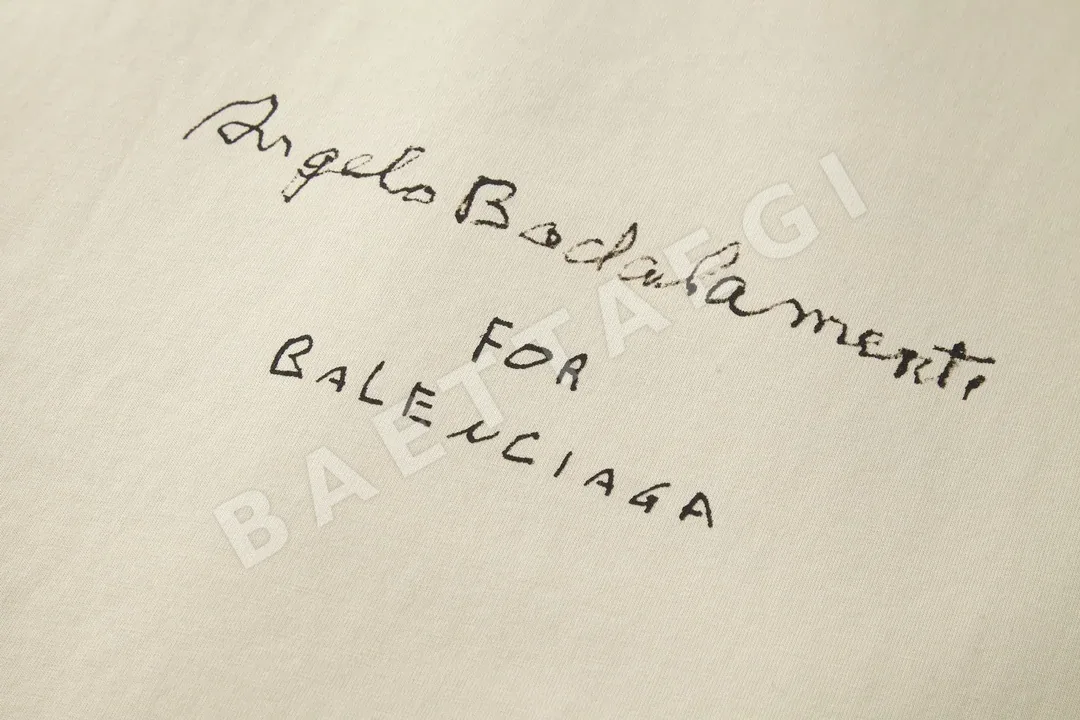 Angelo Badalamenti
FOR
BALENCIAGA
BAETTAEGI